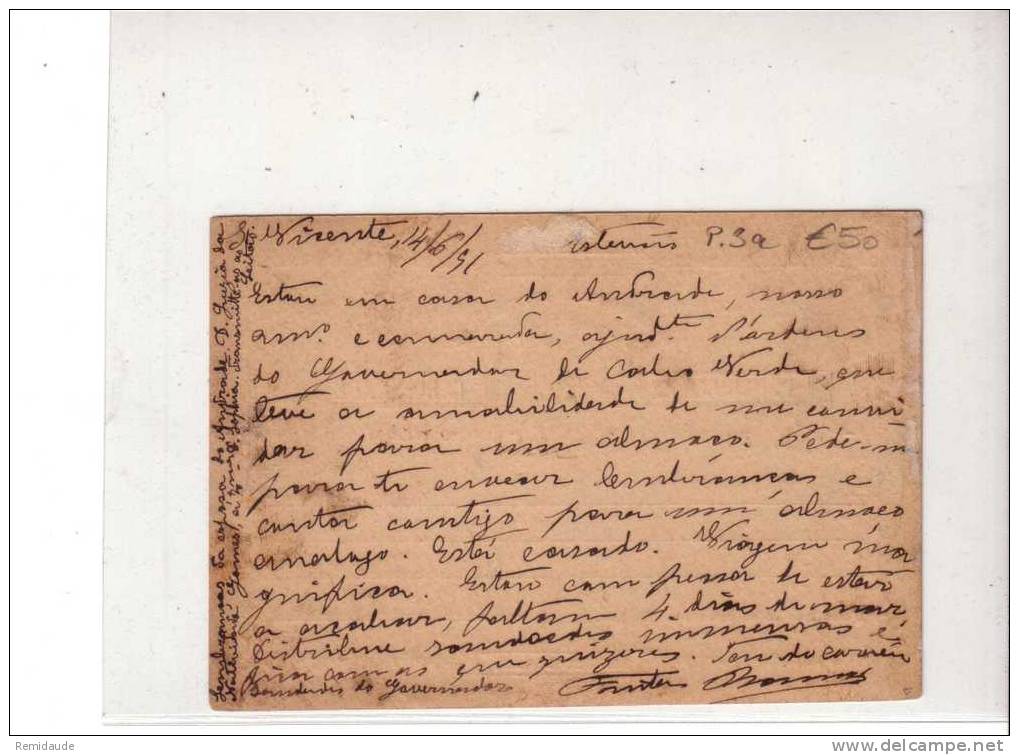 Vicente, 14/6/91
P.3a €50
Estou em casa do Andrade, nosso
am.º e camarada, ajud.te d'ordens
do Governador de Cabo Verde, que
teve a amabilidade de me convi
dar para um almoço. Pede-m
para te enviar lembranças e
contar comtigo para um almoço
analogo. Está casado. Viagem ma
gnifica. Estou com pezar de estar
a acabar, faltam 4 dias de mar
Distribue saudades immensas e
com as quizeres. Teu do
do Governador
Lembranças da esposa do Andrade D. Luzia da
Natividade Gomes, a
Leitão.
Remidaude
www.delcampe.net